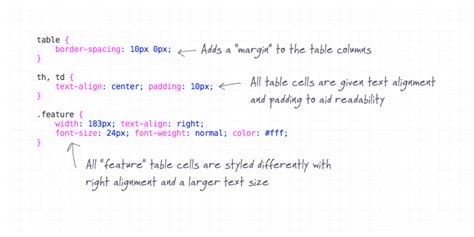 table {
border-spacing: 10px 0px;
}
Adds a "margin" to the table columns
th, td {
text-align: center; padding: 10px;
}
All table cells are given text alignment
and padding to aid readability
.feature {
width: 183px; text-align: right;
font-size: 24px; font-weight: normal; color: #fff;
}
All "feature" table cells are styled differently with
right alignment and a larger text size